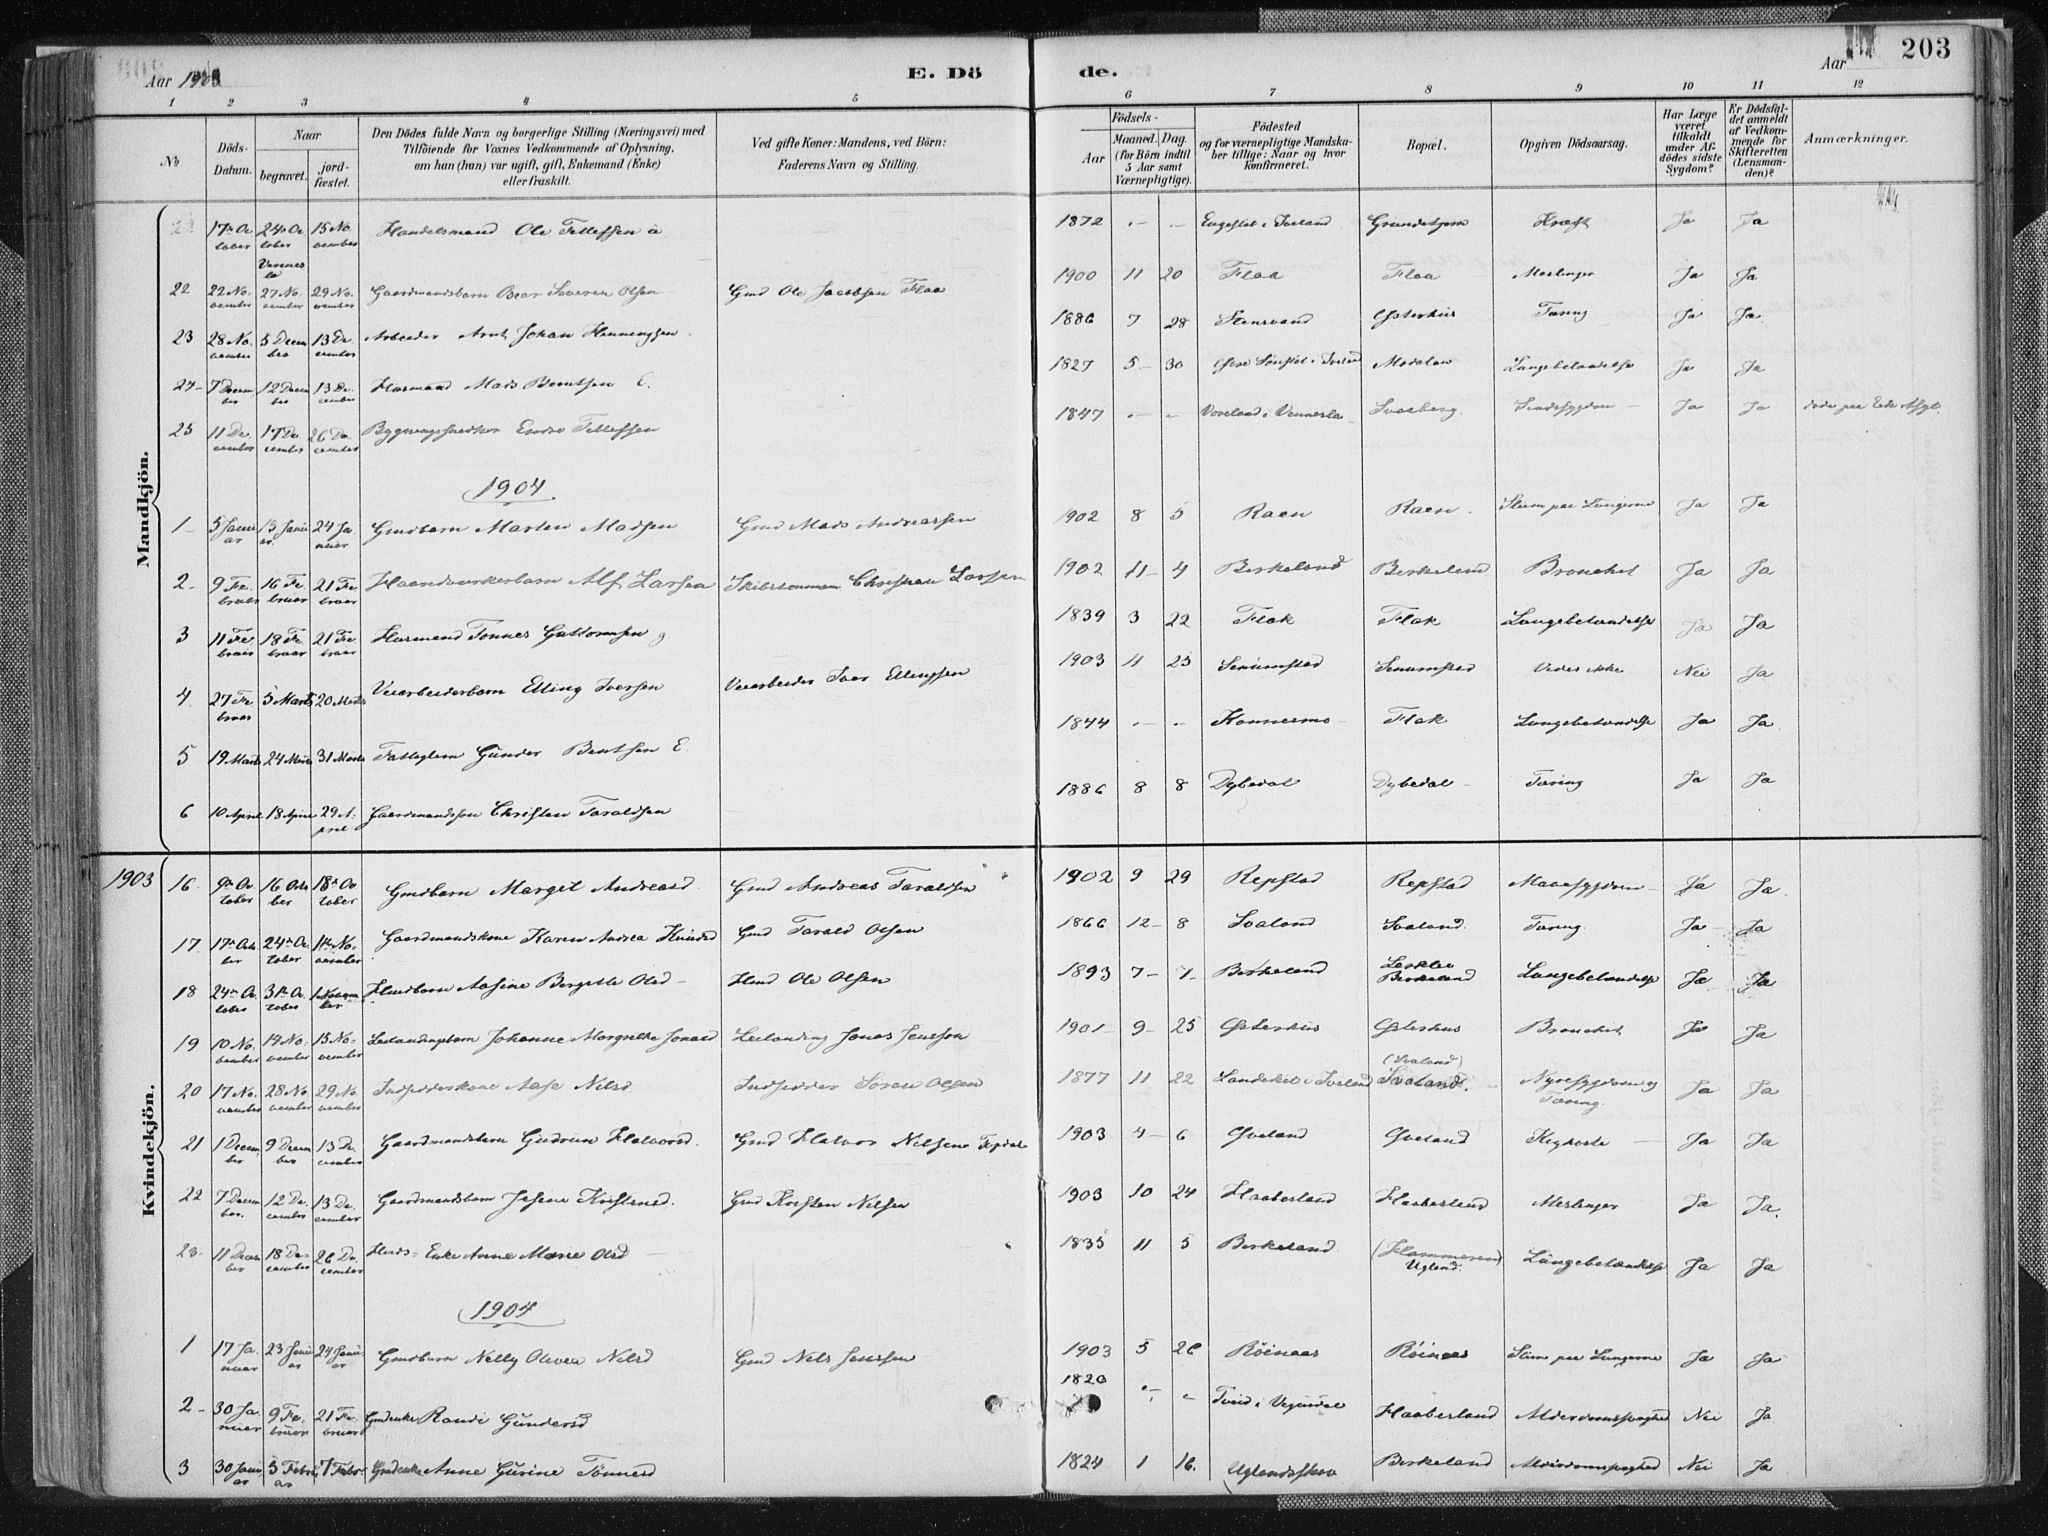 Aar 1903
E. Dö
de.
Aar
203
1 2 3 4 5 6 7 8 9 10 11 12
No
Döds-
Datum.
Naar
begravet.
jord-
fæstet.
Den Dödes fulde Navn og borgerlige Stilling (Næringsvei) med
Tilföiende for Voxnes Vedkommende af Oplysning,
om han (hun) var ugift, gift, Enkemand (Enke)
eller fraskilt.
Ved gifte Koner: Mandens, ved Börn:
Faderens Navn og Stilling.
Födsels-
Aar
Maaned. Dag.
(for Börn indtil
5 Aar samt
Værnepligtige).
Födested
og for værnepligtige Mandska-
ber tillige: Naar og hvor
konfirmeret.
Bopæl.
Opgiven Dödsaarsag.
Har Læge
været
tilkaldt
under Af-
dödes sidste
Sygdom?
Er Dödsfal-
det anmeldt
af Vedkom-
mende for
Skifteretten
(Lensman-
den)?
Anmærkninger.
Mandkjön.
17de October 24de October Vennesla 15 November Handelsmand Ole Tellefsen 1872 - - i Iveland Kræft Ja Ja
22 22 November 27 November 29 November Gaardmandsbarn Oscar Severin Olsen Gmd Ole Jacobsen Flaa 1900 11 20 Flaa Flaa Meslinger Ja Ja
23 28 November 5 December 13 December Arbeider Arnt Johan Henningsen 1886 7 28 Stensvand Østerhus Tæring Ja Ja
24 7 December 12 December 13 December Husmand Mads Berntsen E. 1827 5 30 i Iveland Modalen Lungebetændelse Ja Ja
25 11 December 17 December 26 December Bygningssnedker Endre Tellefsen 1847 - - i Vennesla Svaberg Sindssygdom Ja Ja døde paa Eeds Asyl.
1904
1 5 Januar 13 Januar 24 Januar Gmdbarn Marten Madsen Gmd Mads Andreassen 1902 8 5 Raen Raen Slim paa Lungerne Ja Ja
2 9 Februar 16 Februar 21 Februar Haandværkerbarn Alf Larsen Skibstømmerm Christian Larsen 1902 11 4 Birkeland Birkeland Bronchit Ja Ja
3 11 Februar 18 Februar 21 Februar Husmand Tønnes Guttormsen g 1839 3 22 Flak Flak Lungebetændelse Ja Ja
4 27 Februar 5 Marts 20 Marts Veiarbeiderbarn Elling Iversen Veiarbeider Iver Ellingsen 1903 11 25 Senumstad Senumstad Vides ikke Nei Ja
5 19 Marts 24 Marts 31 Marts Fattiglem Gunder Bentsen E. 1844 - - Konnesmo Flak Lungebetændelse Ja Ja
6 10 April 18 April 29 April Gaardmandssøn Christen Taraldsen 1886 8 8 Dybedal Dybedal Tæring Ja Ja
Kvindekjön.
1903 16 9de October 16 October 18de October Gmdbarn Margit Andreasd. Gmd Andreas Taraldsen 1902 9 29 Repstad Repstad Mavesygdom Ja Ja
17 17de October 24de October 1ste November Gaardmandskone Karen Andrea Knudsd Gmd Tarald Olsen 1866 12 8 Svaland Svaland Tæring Ja Ja
18 24de October 31te October 1 November Husmbarn Aasine Bergitte Olsd Hmd Ole Olsen 1893 7 7 Birkeland Birkeland Lungebetændelse Ja Ja
19 10 November 14 November 15 November Leilændingsbarn Johanne Margrethe Jonasd Leilænding Jonas Jensson 1901 9 25 Østerhus Østerhus Bronchit Ja Ja
20 17 November 28 November 29 November Indsidderkone Aase Nilsd Indsidder Søren Olsen 1877 11 22 Landeskil i Iveland (Svaland) Svaland Nyresygdom og Tæring Ja Ja
21 1 December 9 December 13 December Gaardmandsbarn Gudrun Halvorsd. Gmd Halvor Nilsen 1903 4 6 Øveland Øveland Kighoste Ja Ja
22 7 December 12 December 13 December Gaardmandsbarn Jesine Kristensd. Gmd Kristen Nilsen 1903 10 24 Haaberland Haaberland Meslinger Ja Ja
23 11 December 18 December 26 December Hmds-Enke Anne Marie Olsd 1835 11 5 Birkeland (Hammeren) Ugland Lungebetændelse Ja Ja
1904
1 17 Januar 23 Januar 24 Januar Gmdbarn Nelly Olivea Nilsd Gmd Nils Jenssen 1903 5 26 Røinaas Røinaas Slim paa Lungerne Ja Ja
2 30 Januar 9 Februar 21 Februar Gmdenke Randi Gundersd 1820 - - Tveid i Vegusdal Haaberland Alderdomssvaghed Nei Ja
3 30 Januar 5 Februar 7 Febr. Gmdenke Anne Gurine Tønnesd 1824 1 16 Uglandsskov Birkeland Alderdomssvaghed Nei Ja